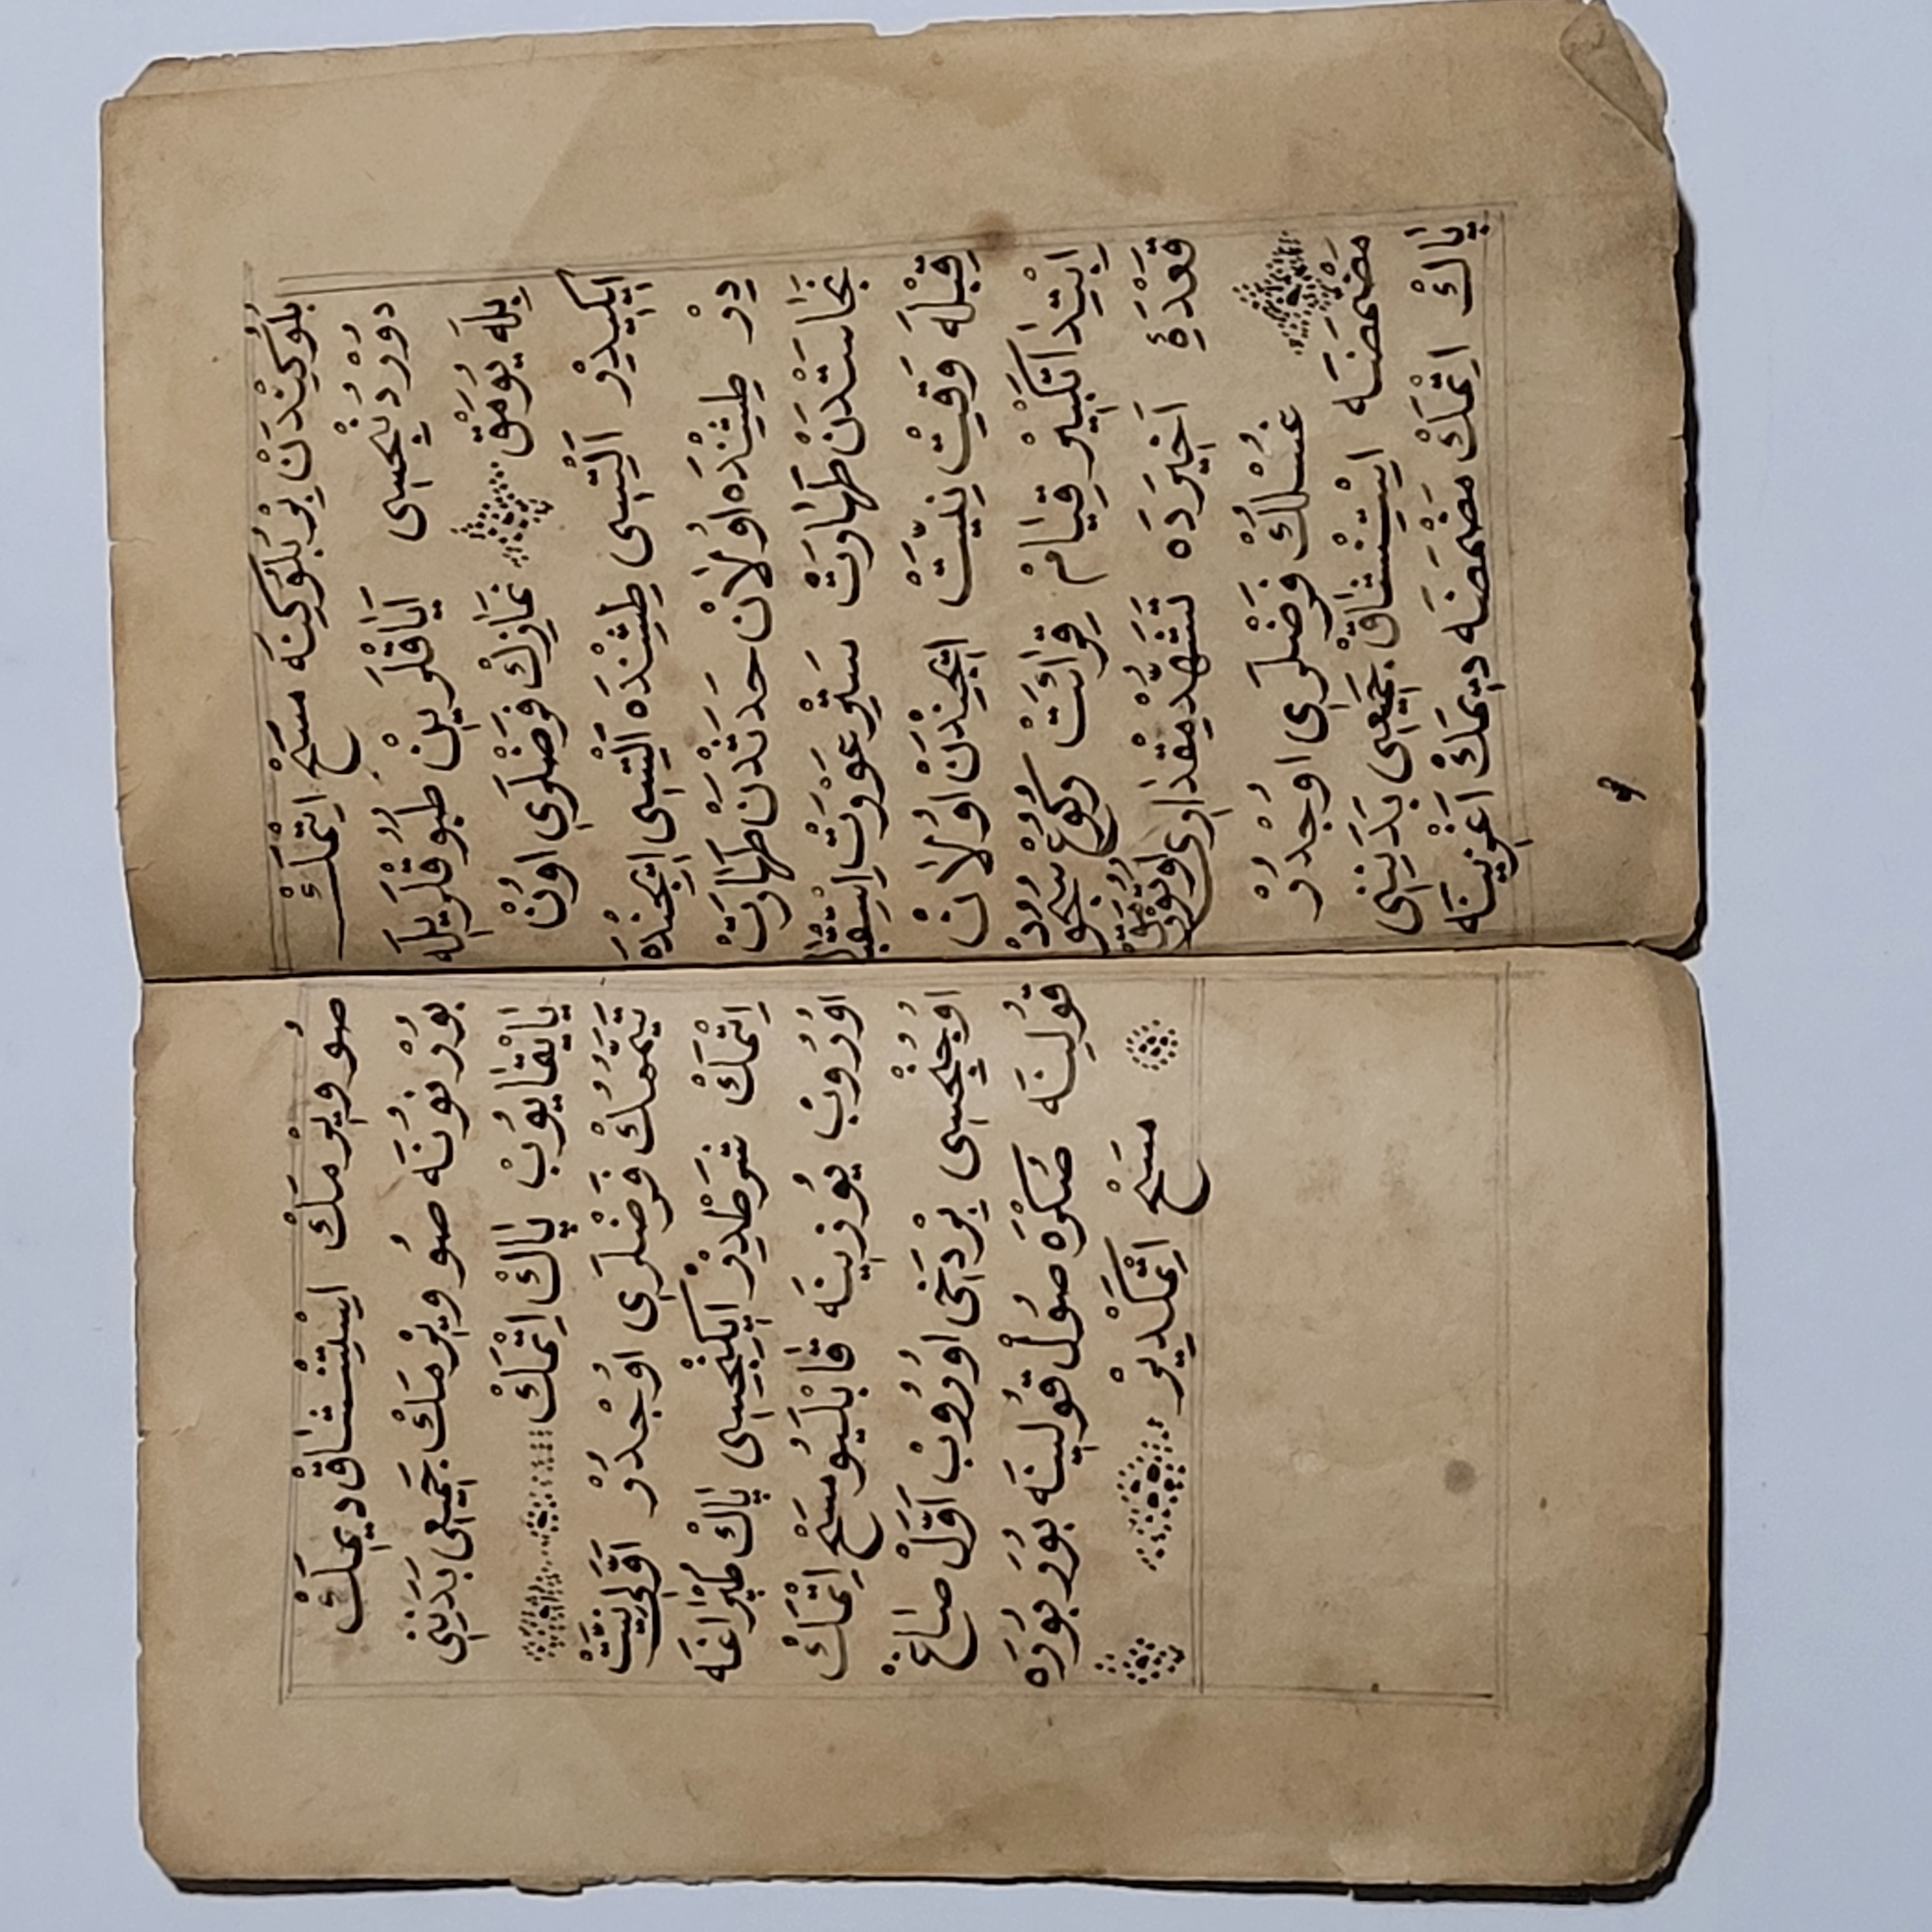 بُلُوكِيْنْدَنْ بِرْ بُلُوكِنَه مَسَحْ اِتْمَكْ
دُورْدُنْجِسِى اَيَاقْلَرِينْ طُبُوقْلَرِيلَه
بِلَه يُومَقْ نَمَازِكْ فَرَضْلَرِى اُونْ
اِيكِيدِرْ اَلْتِسِى طِيشِنْدَه اَلْتِسِى اِيچِنْدَه
دِرْ طِيشِنْدَه اُولَانْ حَدَثْدَنْ طَهَارَتْ
نَجَاسَتْدَنْ طَهَارَتْ سَتْرِ عَوْرَتْ اِسْتِقْبَالِ
قِبْلَه وَقِيتْ نِيَّتْ اِيچِنْدَنْ اُولَانْ
اِبْتِدَا تَكْبِيرْ قِيَامْ قِرَائَتْ رُكُوعْ سُجُودْ
قَعْدَۀِ اَخِيرَدَه تَشَهُّدْ مِقْدَارِى اُوتُورْمَقْ
غُسْلُكْ فَرَضْلَرِى اُوچْدُرْ
مَضْمَضَه اِسْتِنْشَاقْ جَمِيعِى بَدَنِينِى
پَاكْ اِتْمَكْ مَضْمَضَه دِيمَكْ اَغْزِينَه
صُو وِيرْمَكْ اِسْتِنْشَاقْ دِيمَكْ
بُورْنُونَه صُو وِيرْمَكْ جَمِيعِى بَدَنِنِى
يَايْقَايُوبْ پَاكْ اِتْمَكْ
تَيَمُّمُكْ فَرَضْلَرِى اُوچْدُرْ اَوَّلِى نِيَّتْ
اِتْمَكْ شَرَطْدِرْ اِيكِنْجِسِى پَاكْ طُپْرَاغَه
اُورُوبْ يُوزِينَه قَابْلَيُو مَسَحْ اِتْمَكْ
اُوچُنْجِسِى بِرْ دَخِى اُورُوبْ اَوَّلْ صَاغْ
قُولِينَه صُكْرَه صُولْ قُولِينَه بُورَ بُورَه
مَسَحْ اِتْمَكْدِيرْ